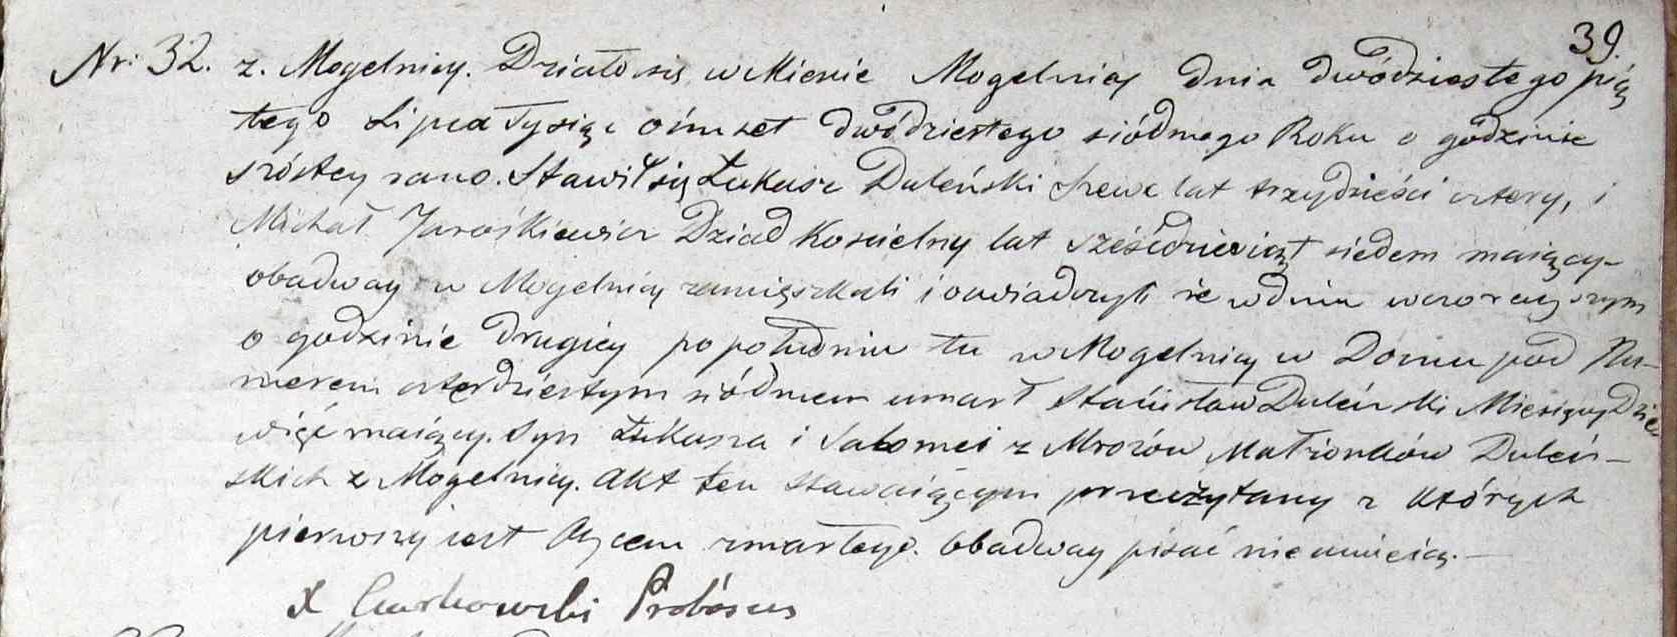 39.
Nr: 32. z. Mogelnicy. Działo się w Mieście Mogelnicy dnia dwódziestego pią
tego Lipca Tysiąc ośmset dwódziestego siódmego Roku o godzinie
szóstey rano. Stawił się Łukasz Duleński Szewc lat trzydzieści cztery, i
Michał Jarośkiewicz Dziad Koscielny lat sześcdziesiąt siedem maiący-
obadway w Mogelnicy zamięszkali i oswiadczyli że w dniu wczorayszym
o godzinie drugiey po południu tu w Mogelnicy w Domu pod Nu-
merem czterdziestym siódmem umarł Stanisław Duleński Miesięcy Dzie
więć maiący. Syn Łukasza i Salomei z Mrozów Małżonków Duleń-
skich z Mogelnicy. Akt ten stawaiącym przeczytany z których
pierwszy iest Oycem zmarłego. obadway pisać nieumieią.-
X Proboszcz